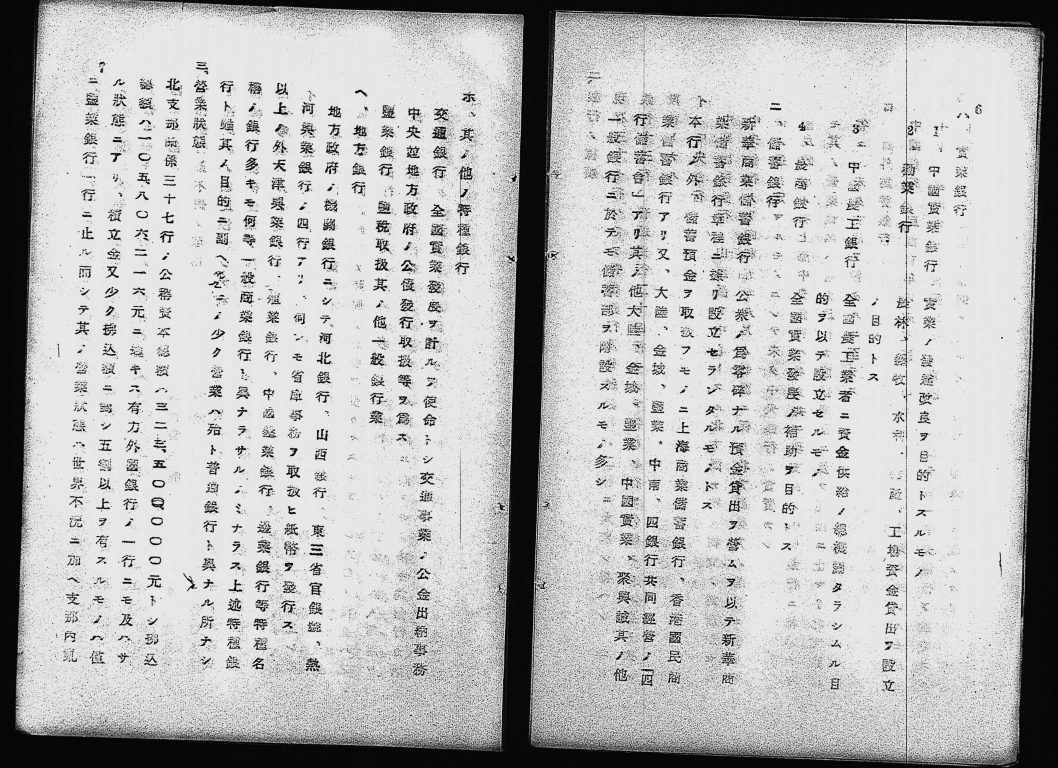 6
ハ、實業銀行
1 中國實業銀行 實業ノ發達改良ヲ目的トスルモノ
2 勸業銀行 農林、墾牧、水利、工場資金貸出ヲ設立
ノ目的トス
3 中國農工銀行 全國農工業者ニ資金供給ノ總機關タラシムル目
的ヲ以テ設立セルモノ
4 農商銀行 全國實業發展ノ補助ヲ目的トス
ニ、儲蓄銀行
新華商業儲蓄銀行 公衆ノ爲零碎ナル預金貸出ヲ營ムヲ以テ新華商
業儲蓄銀行章程ニ據リ設立セラレタルモノトス
本行ノ外ニ儲蓄預金ヲ取扱フモノニ上海商業儲蓄銀行、香港國民商
業儲蓄銀行アリ又、大陸、金城、鹽業、中南、四銀行共同經營ノ「四
行儲蓄會」アリ其ノ他大陸、金城、鹽業、中國實業、聚興誠其ノ他
一般銀行ニ於テモ儲蓄部ヲ附設スルモノ多シ
ホ、其ノ他ノ特種銀行
交通銀行 全國實業發展ヲ計ルヲ使命トシ交通事業ノ公金出納事務
中央並地方政府ノ公債發行取扱等ヲ爲ス
鹽業銀行 鹽稅取扱其ノ他一般銀行業
ヘ、地方銀行
地方政府ノ機關銀行ニシテ河北銀行、山西銀行、東三省官銀號、熱
河興業銀行ノ四行アリ、何レモ省庫事務ヲ取扱ヒ紙幣ヲ發行ス
以上ノ外天津興業銀行、殖業銀行、中國墾業銀行、邊業銀行等特種名
稱ノ銀行多キモ何等一般商業銀行ト異ナラサルノミナラス上述特種銀
行ト雖其ノ目的ニ副ヘルモノ少ク營業ハ殆ト普通銀行ト異ナル所ナシ
三、營業狀態
北支部關係三十七行ノ公稱資本總額ハ三二三、五〇〇、〇〇〇元トシ拂込
總額ハ一〇五八〇六二一六元ニ過キス有力外國銀行ノ一行ニモ及ハサ
ル狀態ニアリ、積立金又少ク拂込額ニ對シ五割以上ヲ有スルモノハ僅
ニ鹽業銀行一行ニ止ル而シテ其ノ營業狀態ハ世界不況ニ加ヘ支那內亂
7